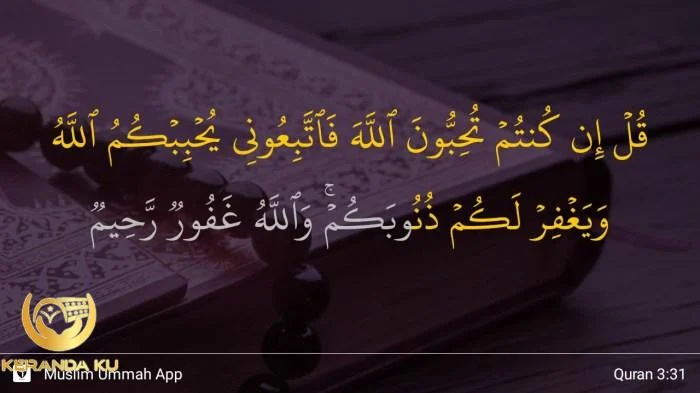 قُلۡ إِن كُنتُمۡ تُحِبُّونَ ٱللَّهَ فَٱتَّبِعُونِي يُحۡبِبۡكُمُ ٱللَّهُ
وَيَغۡفِرۡ لَكُمۡ ذُنُوبَكُمۡۚ وَٱللَّهُ غَفُورٞ رَّحِيمٞ
KERANDA KU
Muslim Ummah App
Quran 3:31